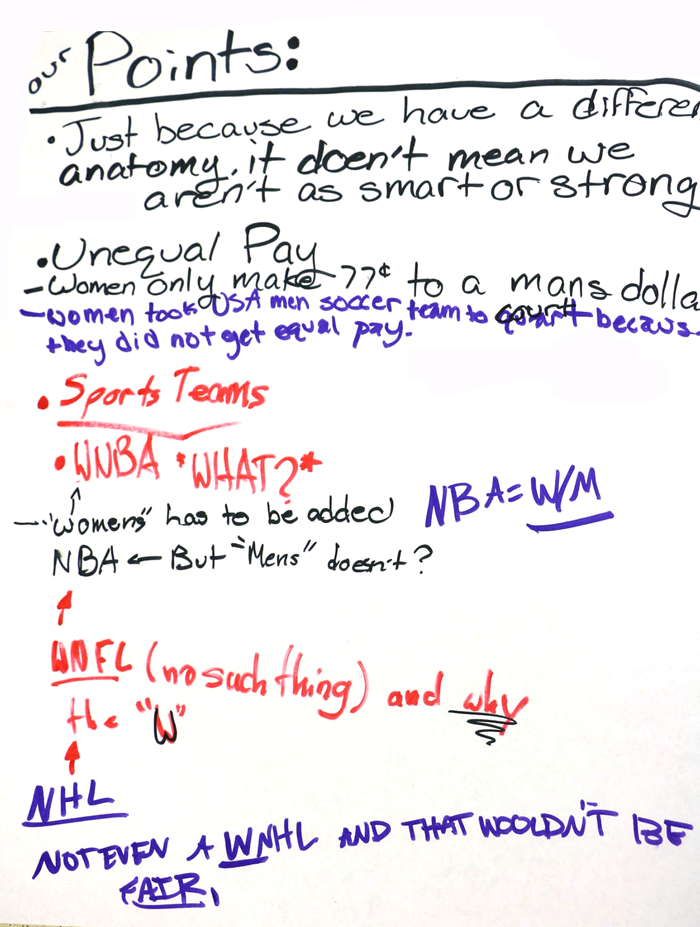 our Points:
• Just because we have a differen
anatomy. it doen't mean we
aren't as smart or strong
• Unequal Pay
- Women only make 77¢ to a mans dolla
- women took USA men soccer team to court becaus
they did not get equal pay.
• Sports Teams
• WNBA *WHAT?*
- "womens" has to be added
NBA = W/M
NBA ← But "Mens" doesn't?
WNFL (no such thing) and why
the "W"
NHL
NOT EVEN A WNHL AND THAT WOULDN'T BE
FAIR,